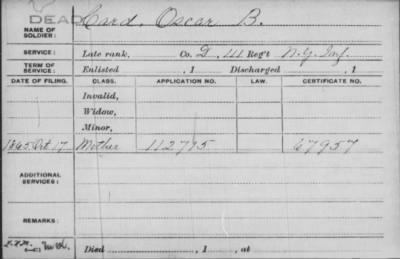 DEAD
NAME OF SOLDIER: Card, Oscar B.
SERVICE: Late rank, Co. D, 111 Reg't N.Y. Inf.
TERM OF SERVICE: Enlisted , 1 Discharged , 1
DATE OF FILING. CLASS. APPLICATION NO. LAW. CERTIFICATE NO.
Invalid,
Widow,
Minor,
1865 Oct. 17 Mother 112715 67957
ADDITIONAL SERVICES:
REMARKS:
Died , 1 , at